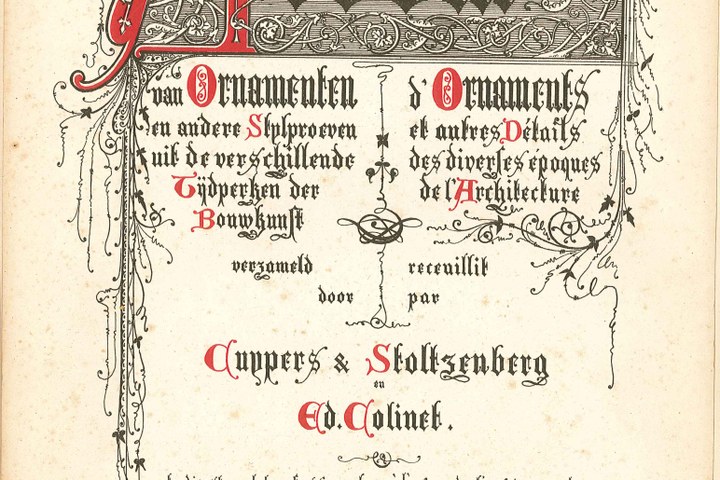 van Ornamenten
en andere Stylproeven
uit de verschillende
Tijdperken der
Bouwkunst
verzameld
door
d'Ornaments
et autres Détails
des diverses époques
de l'Architecture
receuillit
par
Cuypers & Stoltzenberg
en
Ed. Colinet.